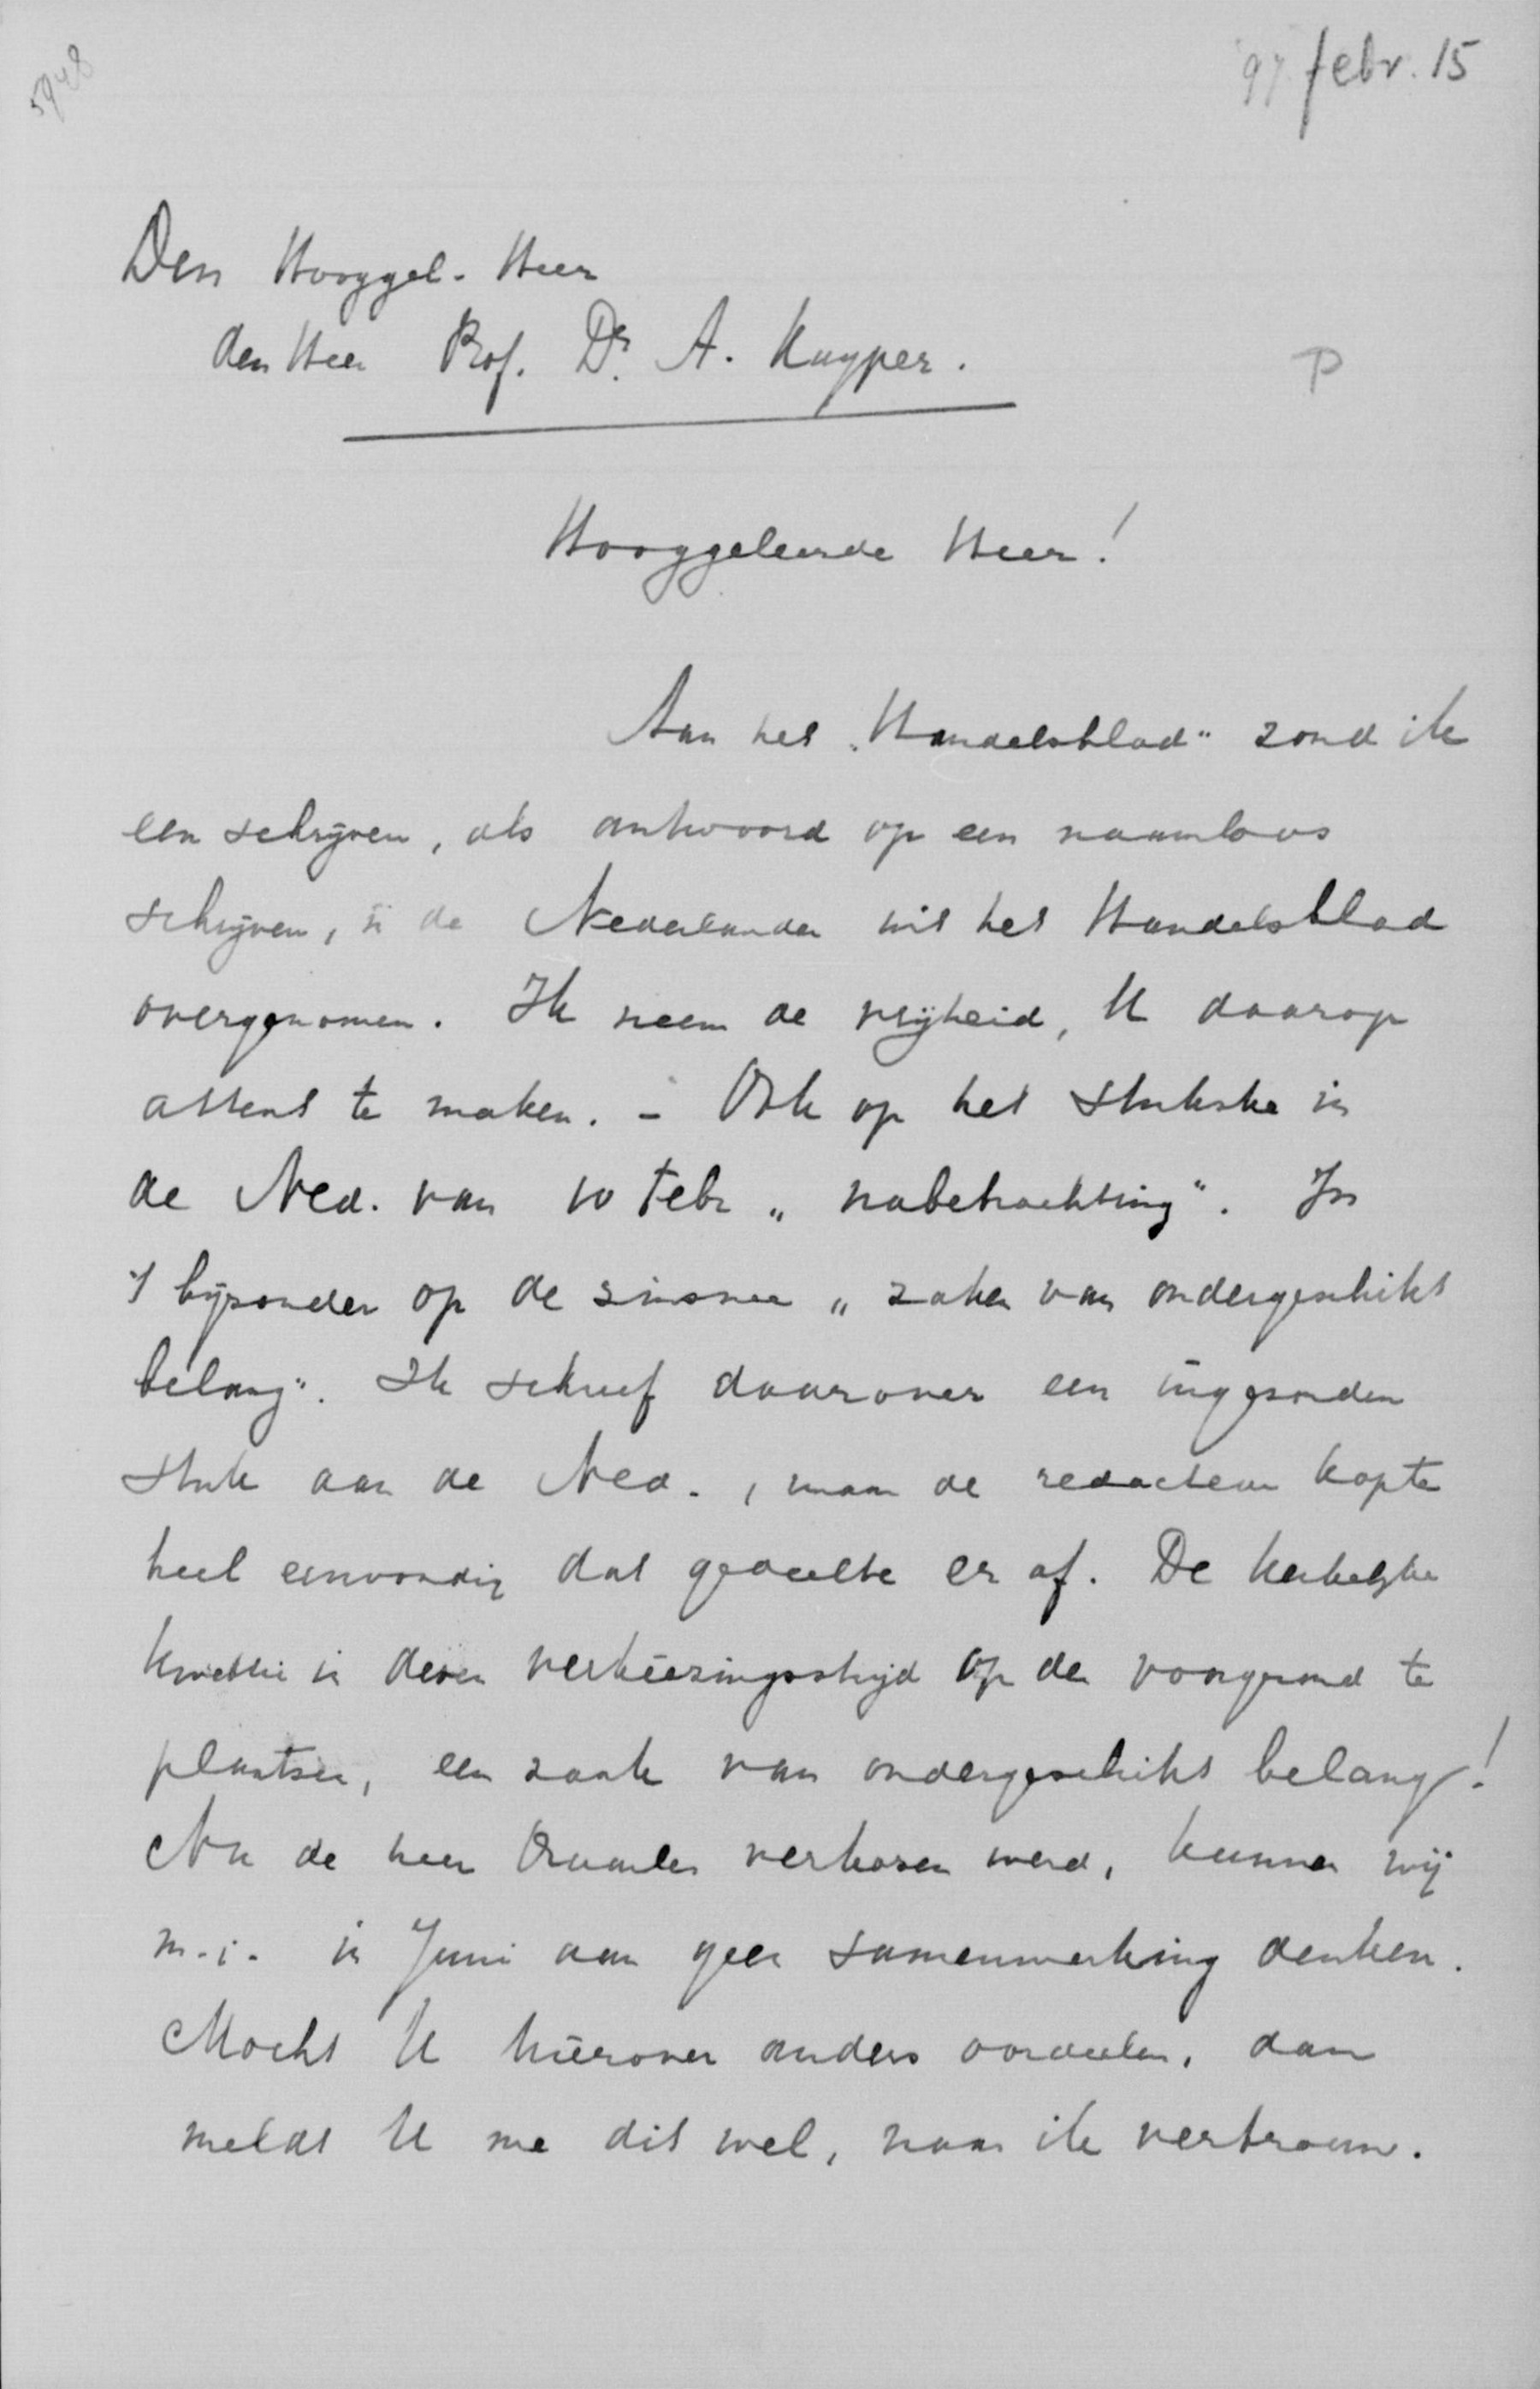 5948
97 febr. 15
Den Hooggel. Heer
den Heer Prof. Dr. A. Kuyper.
P
Hooggeleerde Heer!
Aan het "Handelsblad" zond ik
een schrijven, als antwoord op een naamloos
schrijven, in de Nederlander uit het Handelsblad
overgenomen. Ik neem de vrijheid, U daarop
attent te maken. - Ook op het stukske in
de Ned. van 10 Febr "nabetrachting". In
't bijzonder op de zinsnee "zaken van ondergeschikt
belang". Ik schreef daarover een ingezonden
stuk aan de Ned., maar de redacteur kapte
heel eenvoudig dat gedeelte er af. De kerkelijke
kwestie in dezen verkiezingsstrijd op den voorgrond te
plaatsen, een zaak van ondergeschikt belang!
Nu de heer verkozen werd, kunnen wij
m.i. in Juni aan geen samenwerking denken.
Mocht U hierover anders oordeelen, dan
meldt U me dit wel, naar ik vertrouw.